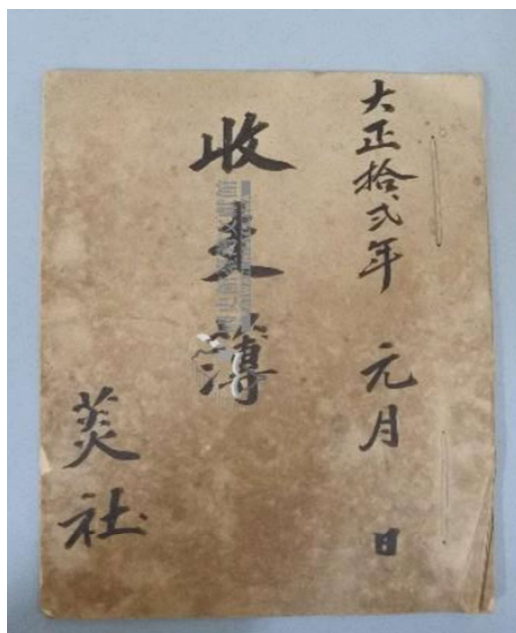 大正拾弍年 元月 日
收支簿
菼社